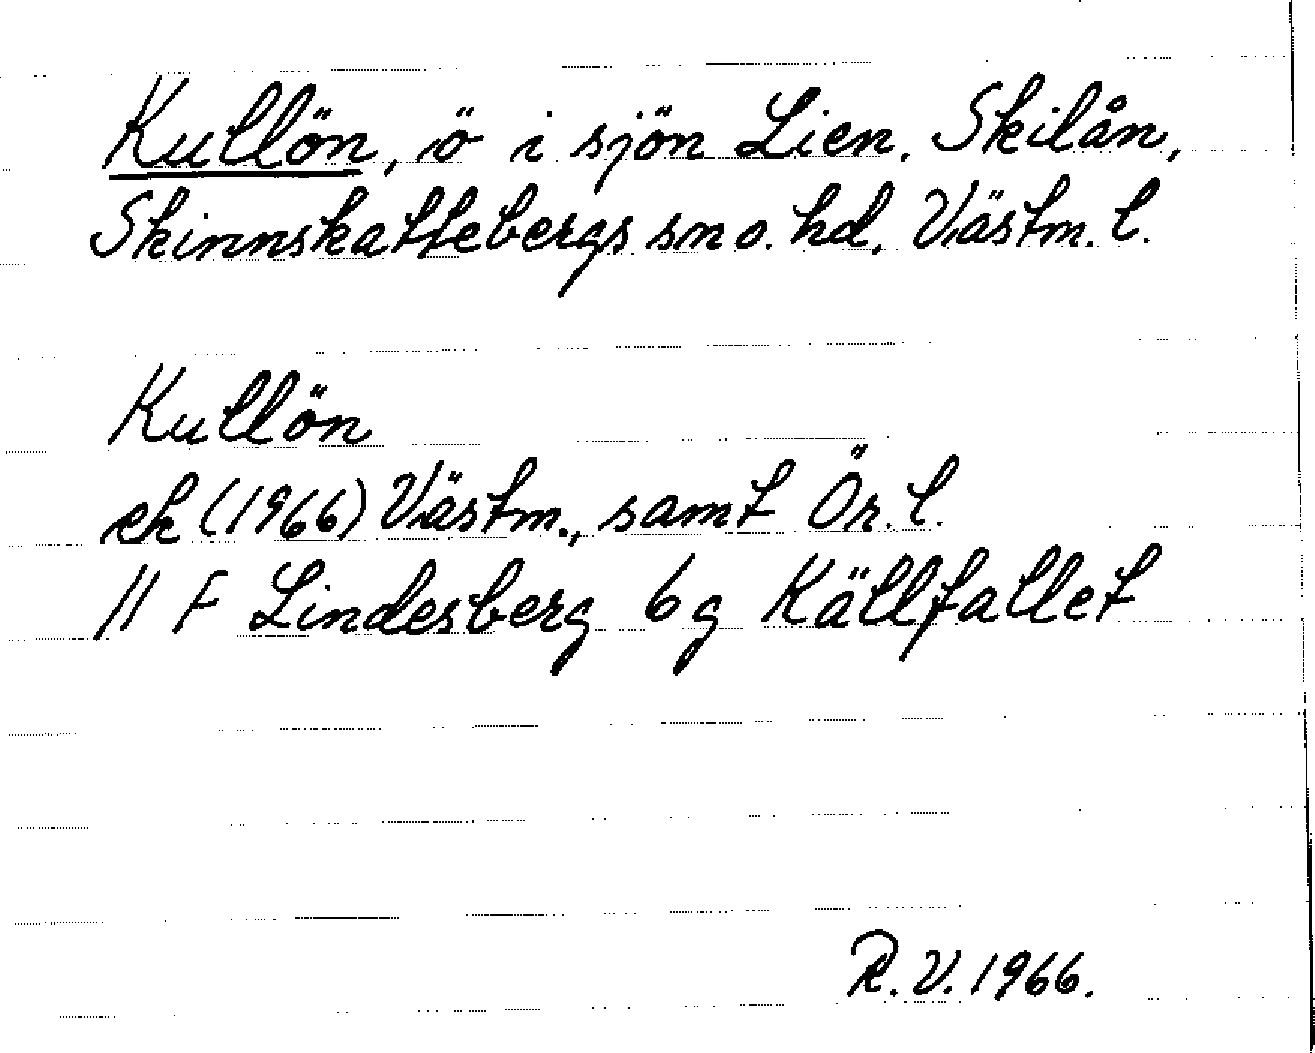 Kullön, ö i sjön Lien. Skilån,
Skinnskattebergs sn o. hd. Västm. l.
Kullön
ek (1966) Västm., samt Ör. l.
11 F Lindesberg 6g Källfallet
R.V. 1966.